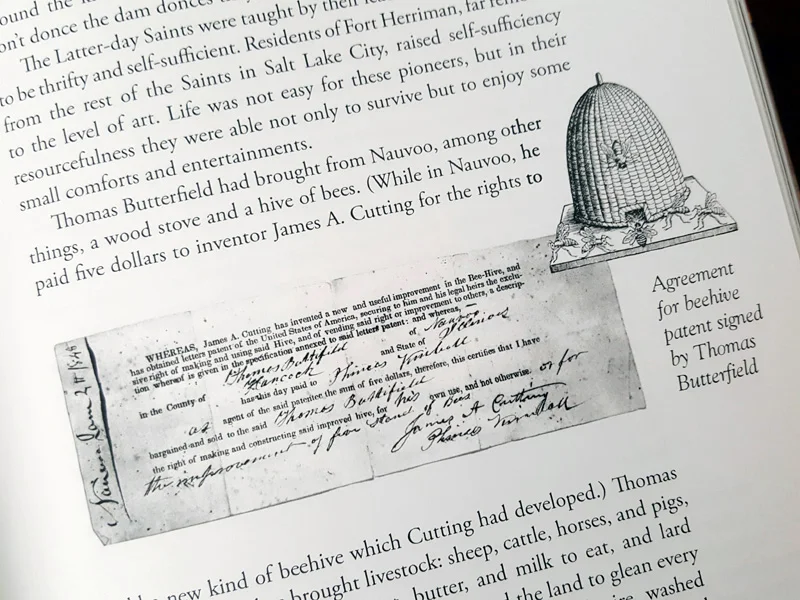 ound the
on't donce the dam donces
The Latter-day Saints were taught by their
to be thrifty and self-sufficient. Residents of Fort Herriman, far
from the rest of the Saints in Salt Lake City, raised self-sufficiency
to the level of art. Life was not easy for these pioneers, but in their
resourcefulness they were able not only to survive but to enjoy some
small comforts and entertainments.
Thomas Butterfield had brought from Nauvoo, among other
things, a wood stove and a hive of bees. (While in Nauvoo, he
paid five dollars to inventor James A. Cutting for the rights to
WHEREAS, James A. Cutting has invented a new and useful improvement in the Bee-Hive, and
has obtained letters patent of the United States of America, securing to him and his legal heirs the exclu-
sive right of making and using said Hive, and of vending said right or improvement to others, a descrip-
tion whereof is given in the specification annexed to said letters patent: and whereas,
Thomas Buttifield of Nauvoo
in the County of Hancock and State of Illinois
has this day paid to Phinies Kimball
as agent of the said patentee, the sum of five dollars, therefore, this certifies that I have
bargained and sold to the said Thomas Buttifield
the right of making and constructing said improved hive, for his own use, and not otherwise. or for
the improvement of five stand of Bees
James A Cutting
Phinies Kimball
Nauvoo Jan
Agreement
for beehive
patent signed
by Thomas
Butterfield
new kind of beehive which Cutting had developed.) Thomas
brought livestock: sheep, cattle, horses, and pigs,
butter, and milk to eat, and lard
the land to glean every
washed